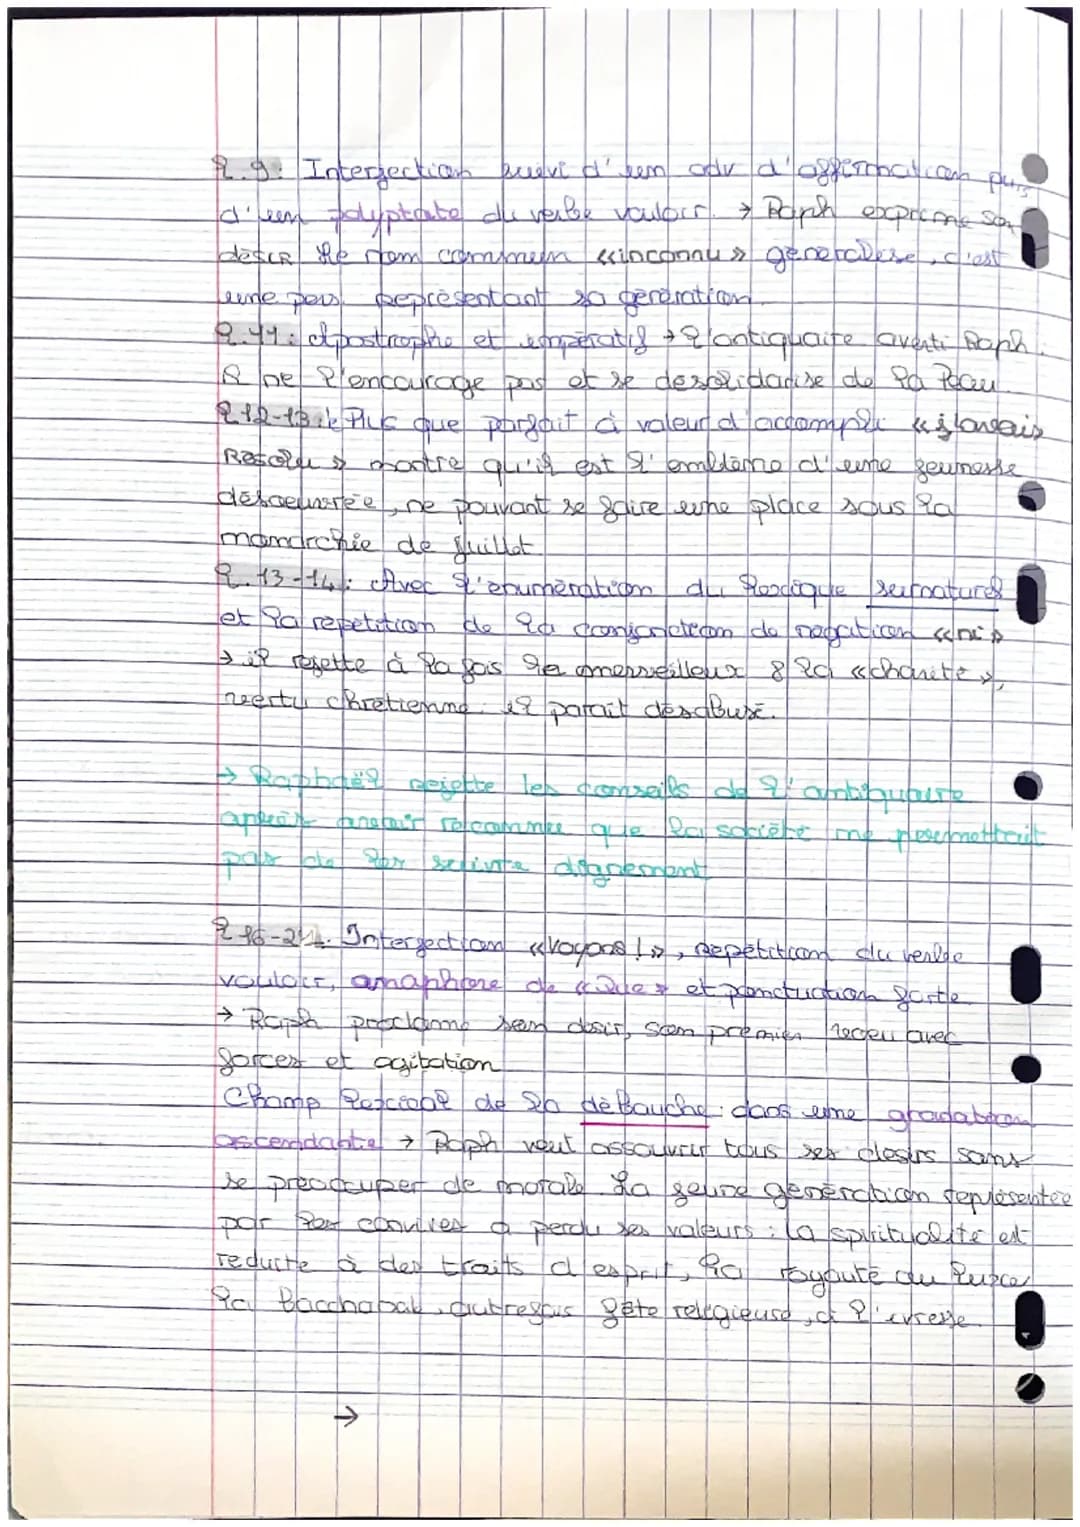 l.9: Interjection suivi d'un adv d'affirmation puis
d'un polyptote du verbe vouloir. → Raph exprime son
désir. Le nom commun «inconnu» généralise, c'est
une pers représentant sa génération.
l.11: Apostrophe et impératif → l'antiquaire averti Raph.
Il ne l'encourage pas et se desolidarise de la Peau
l 12-13: Plus que parfait à valeur d'accompli «j'avais
Resolu» montre qu'il est l'emblème d'une jeunesse
désoeuvrée, ne pouvant se faire une place sous la
monarchie de juillet
l. 13-14: Avec l'enumération du lexique surnaturel
et la repetition de la conjonction de négation «ni»
→ il rejette à la fois le merveilleux & la «charité»,
vertu chrétienne. il parait désabusé.
→ Raphaël rejette les conseils de l'antiquaire
après avoir reconnu que la société ne permettrait
pas de les suivre dignement
l 16-24. Interjection «Voyons!», repetition du verbe
vouloir, anaphore de «Que» et ponctuation forte
→ Raph proclame son désir, son premier voeu avec
forces et agitation
Champ lexical de la débauche: dans une gradation
ascendante → Raph veut assouvrir tous ses désirs sans
se préoccuper de morale. La jeune génération représentée
par les convives a perdu ses valeurs: la spiritualité est
reduite à des traits d'esprit, la royauté au luxe,
la Bacchanale, autrefois fête religieuse, à l'ivresse.
→